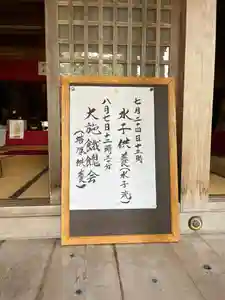 七月二十四日十三時
水子供養(水子光)
八月七日十二時三十分
大施餓鬼会
(塔婆供養)